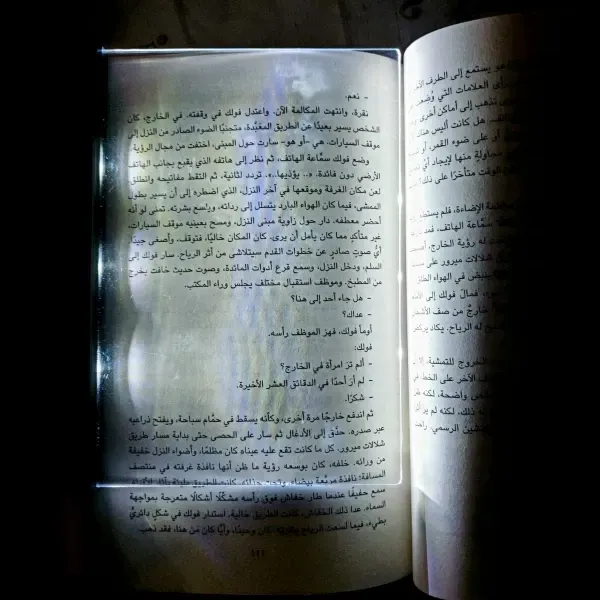 - نعم.
نقرة، وانتهت المكالمة الآن. واعتدل فولك في وقفته. في الخارج، كان
الشخص يسير بعيدًا عن الطريق المعبَّدة، متجنبًا الضوء الصادر من النزل إلى
موقف السيارات. هي -أو هو- سارت حول المبنى، اختفت من مجال الرؤية.
وضع فولك سمَّاعة الهاتف، ثم نظر إلى هاتفه الذي يقبع بجانب الهاتف
الأرضي دون فائدة. «.. يؤذيها..». تردد لثانية، ثم التقط مفاتيحه وانطلق.
لعن مكان الغرفة وموقعها في آخر النزل، الذي اضطره إلى أن يسير بطول
الممشى، فيما كان الهواء البارد يتسلل إلى ردائه، ويراضع بشرته. تمنى لو أنه
أحضر معطفه. دار حول زاوية مبنى النزل، ومسح بعينيه موقف السيارات،
غير متأكد مما كان يأمل أن يرى. كان المكان خاليًا، فتوقف، وأصغى جيدًا.
أيُّ صوتٍ صادرٍ عن خطوات القدم سيتلاشى من أثر الرياح. سار فولك إلى
السلم، ودخل النزل، وسمع قرع أدوات المائدة، وصوت حديث خافت يخرج
من المطبخ. وموظف استقبال مختلف يجلس وراء المكتب.
- هل جاء أحد إلى هنا؟
- عداك؟
أومأ فولك، فهز الموظف رأسه.
فولك:
- ألم ترَ امرأة في الخارج؟
- لم أرَ أحدًا في الدقائق العشر الأخيرة.
- شكرًا.
ثم اندفع خارجًا مرة أخرى، وكأنه يسقط في حمَّام سباحة، ويفتح ذراعيه
عبر صدره. حدَّق إلى الأدغال ثم سار على الحصى حتى بداية مسار طريق
شلالات ميرور. كل ما كانت تقع عليه عيناه كان مظلمًا، وأضواء النزل خفيفة
من ورائه. خلفه، كان بوسعه رؤية ما ظن أنها نافذة غرفته في منتصف
المسافة؛ نافذة مربَّعة بيضاء. وتحت حذائه، كانت الطريق
سمع حفيفًا عندما طار خفاش فوق رأسه مشكِّلًا أشكالًا متعرجة بمواجهة
السماء. عدا ذلك الخفاش، كانت الطريق خالية. استدار فولك في شكلٍ دائريٍّ
بطيء، فيما لسعت الرياح كان وحيدًا، وأيًّا كان مَن هنا، فقد ذهب.
111
هو يستمع إلى الطرف
العلامات التي
تذهب إلى أماكن أخرى
هل كانت أليس
أو على ضوء القمر، أو
محاولةٍ منها لإيجاد
الوقت متأخرًا على ذلك
الإضاءة، فلم
سمَّاعة الهاتف،
له رؤية الخارج،
شلالات ميرور على
ينبض في الهواء
فمال فولك إلى
خارجٌ من صف
له الرياح. يكاد
الخروج للتمشية.
الآخر على الخط
واضحة. لكنه
ذلك، لكنه لم
الرسمي.